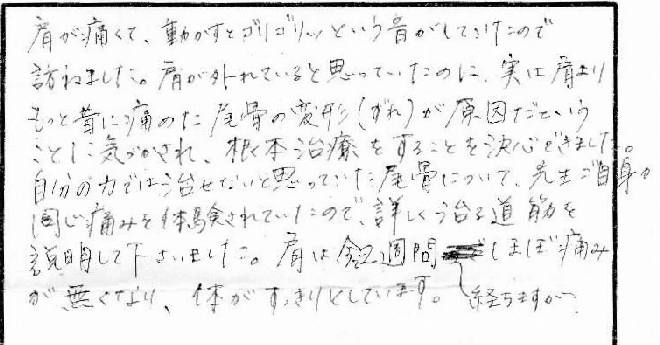 肩が痛くて、動かすとゴリゴリッという音がしていたので
訪ねました。肩が外れていると思っていたのに、実は肩より
もっと昔に痛めた尾骨の変形(ずれ)が原因だという
ことに気づかされ、根本治療をすることを決心できました。
自分の力では治せないと思っていた尾骨について、先生ご自身も
同じ痛みを体験されていたので、詳しく治る道筋を
説明して下さいました。肩は 週間 でほぼ痛み
が無くなり、体がすっきりとしています。 経ちますが、